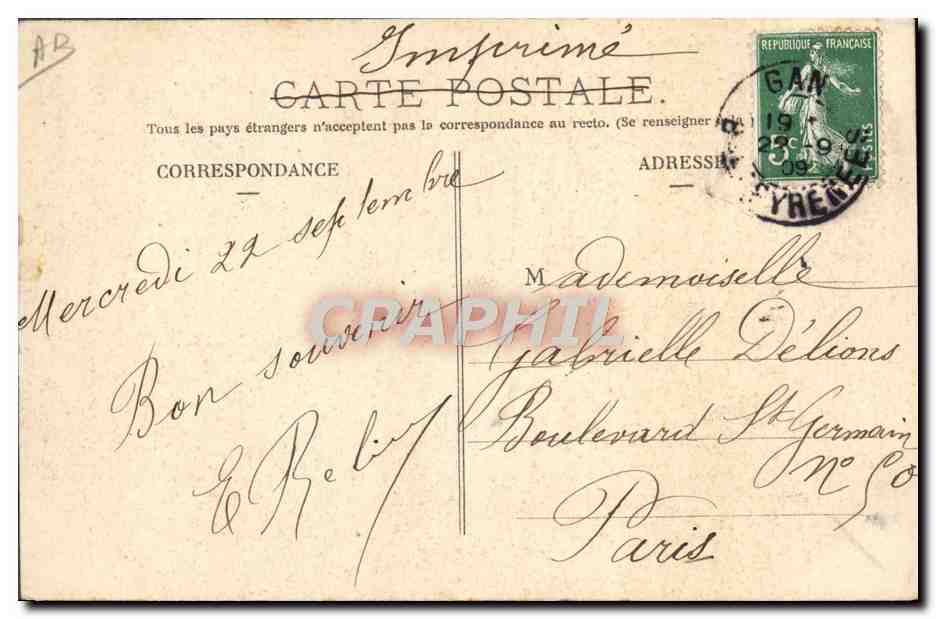 AB
Imprimé
CARTE POSTALE.
Tous les pays étrangers n'acceptent pas la correspondance au recto. (Se renseigner
CORRESPONDANCE
ADRESSE
REPUBLIQUE FRANÇAISE
5c
POSTES
GAN
19
22 -9
09
PYRENEES
Mercredi 22 septembre
Bon souvenir
Mademoiselle
Gabrielle Délions
Boulevard St Germain
No 50
Paris
CPAPHIL